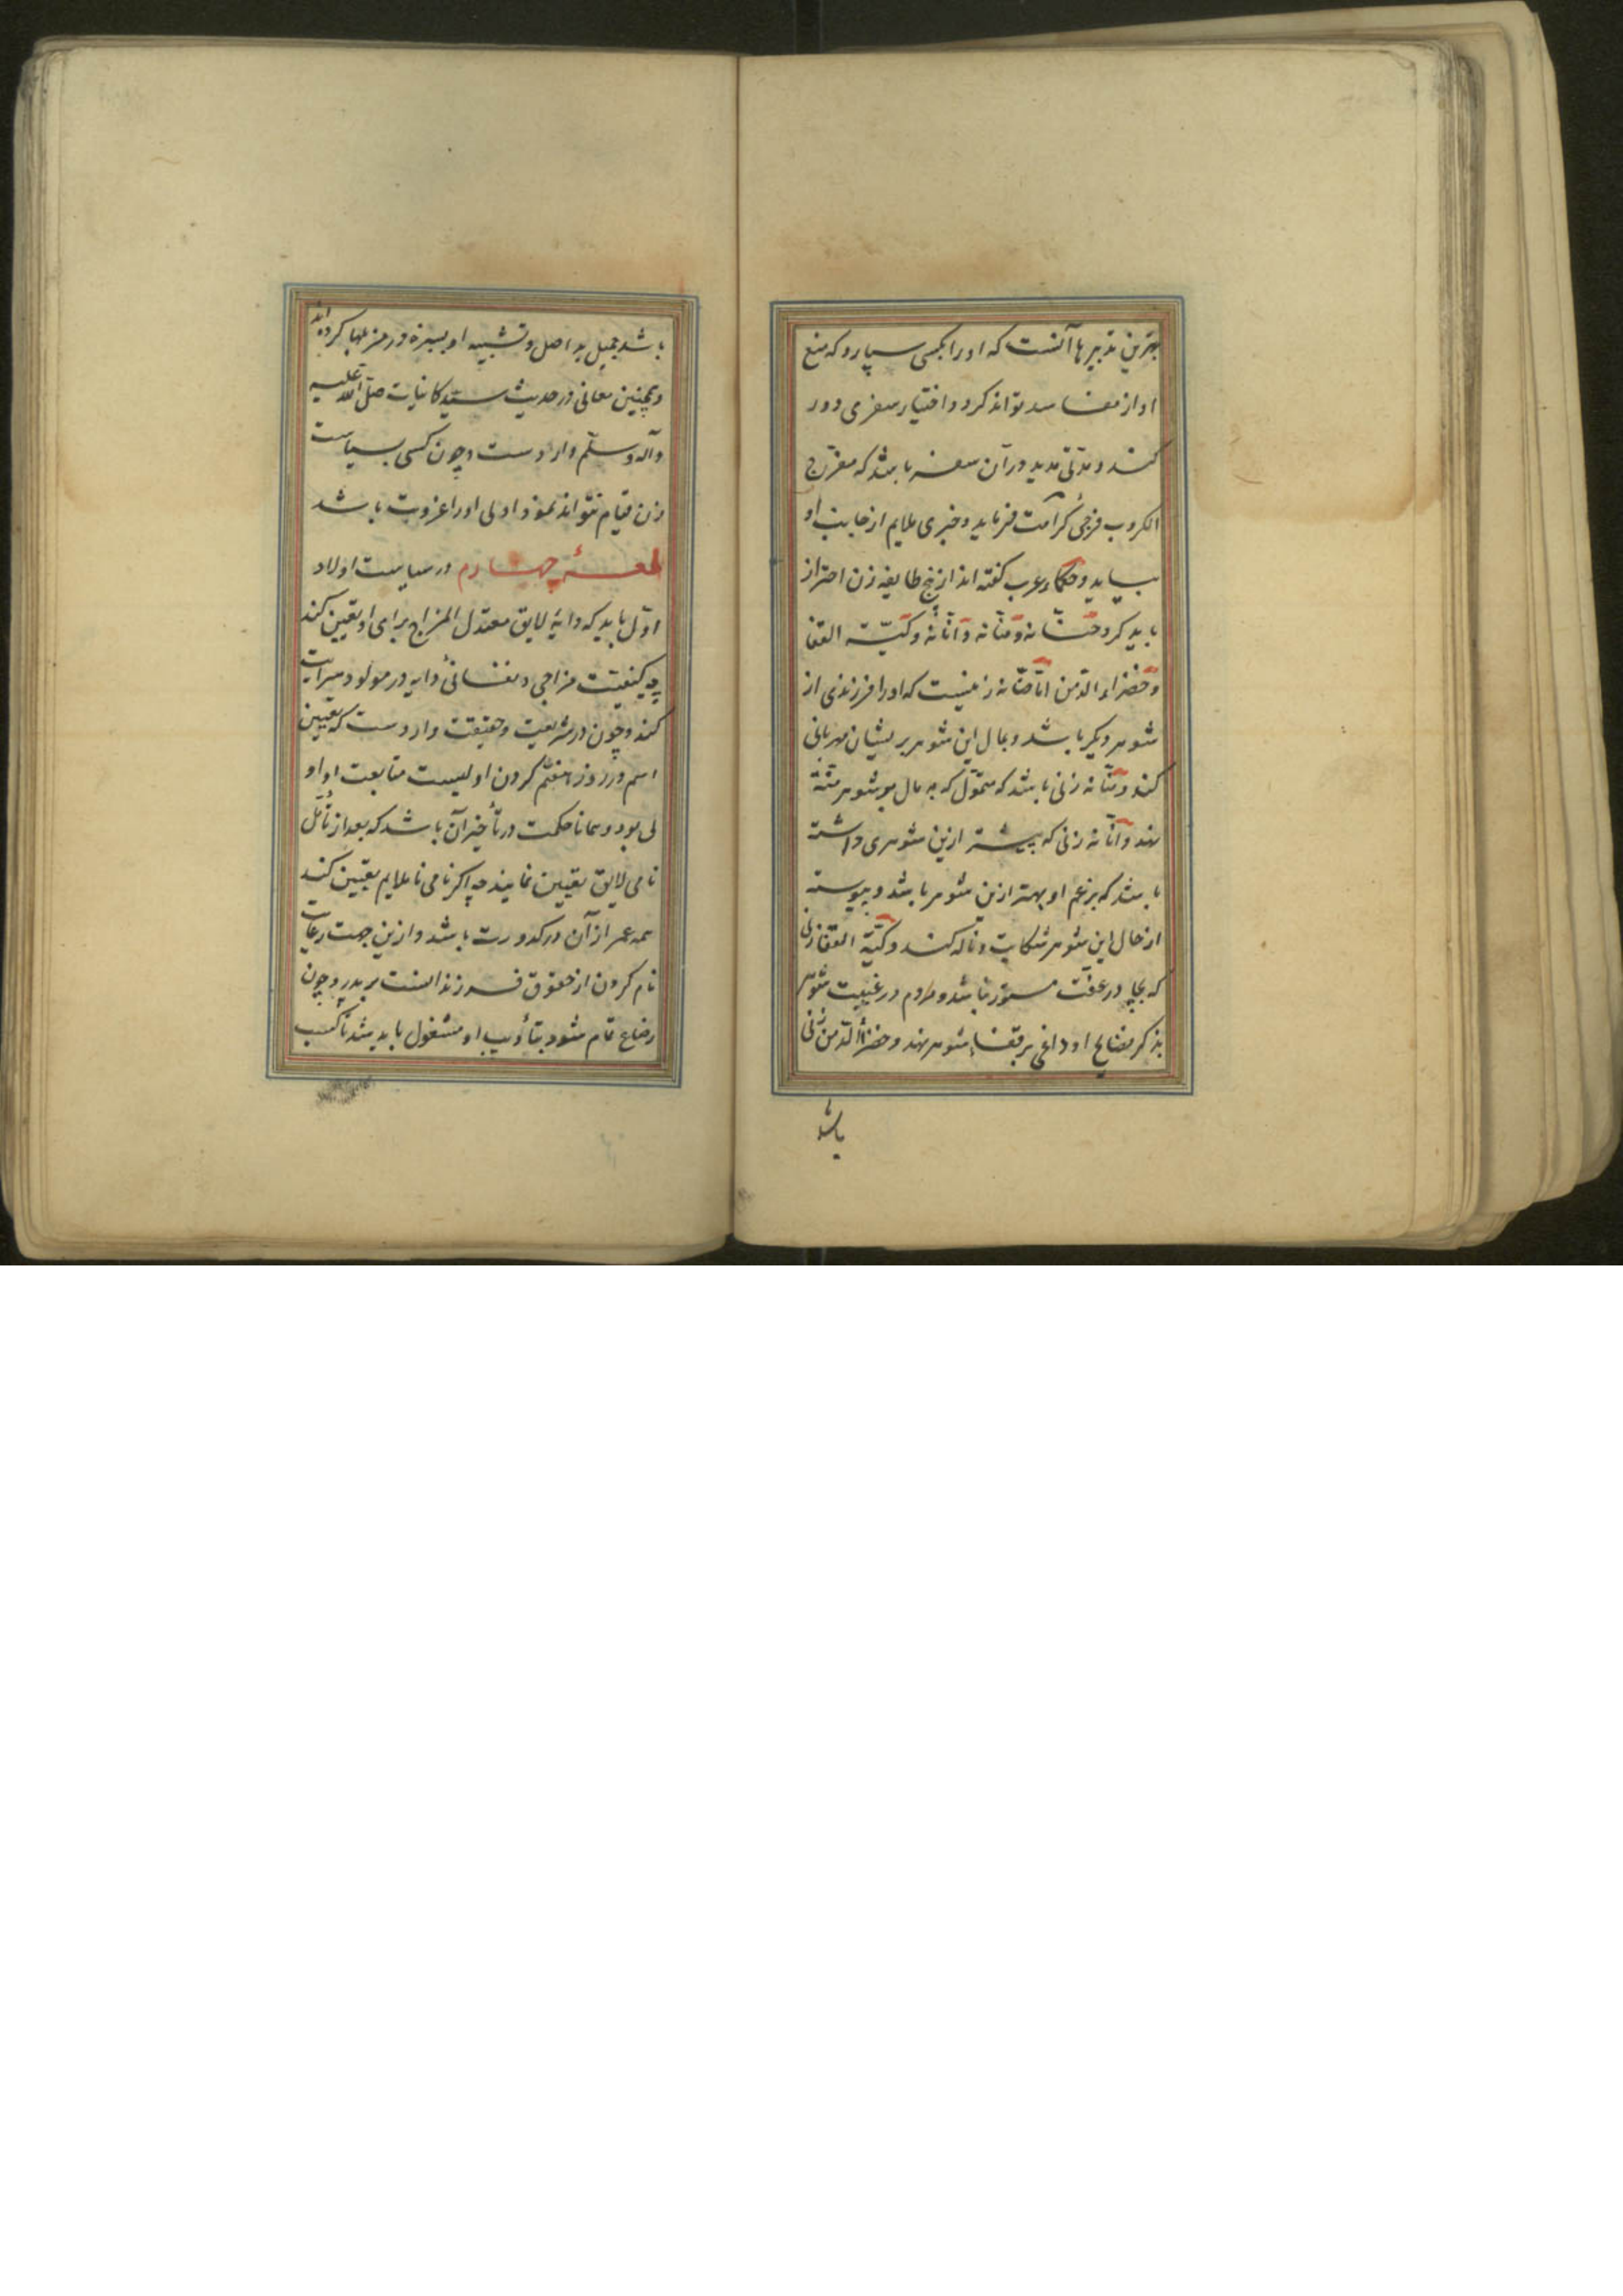 بهترین تدبیرها آنست که او را بکسی سپارد که منع
او از مفاسد تواند کرد و اختیار سفری دور
کند و مدتی مدید در آن سفر باشد که مفرّج
الکروب فرجی کرامت فرماید و خبری ملایم از جانب او
بیاید و حکماء عرب گفته اند از پنج طایفه زن احتراز
باید کرد حنّانه و منّانه و انّانه و کیّة القفا
و خضراء الدّمن امّا حنّانه زنیست که او را فرزندی از
شوهر دیگر باشد و بمال این شوهر بر ایشان مهربانی
کند و منّانه زنی باشد که متموّل که به مال بر شوهر منّت
نهد و انّانه زنی که پیشتر ازین شوهری داشته
باشد که بزعم او بهتر ازین شوهر باشد و پیوسته
از حال این شوهر شکایت و ناله کند و کیّة القفا زنی
که بچادر عفّت مستور نباشد و مردم در غیبت شوهر
بذکر فضایح او داغی بر قفاء شوهر نهند و خضراء الدّمن زنی
باشد
باشد جمیل بد اصل و تشبیه او بسبزهٔ در مزبلها کرده اند
و همچنین معانی در حدیث سیّد کاینات صلّی الله علیه
و آله و سلّم واردست و چون کسی بسیاست
زن قیام نتواند نمود اولی او را عزوبت باشد
لمعهٔ چهارم در سیاست اولاد
اوّل باید که دایهٔ لایق معتدل المزاج برای او تعیین کند
چه کیفیّت مزاجی و نفسانی دایه در مولود سرایت
کند و چون در شریعت و حقیقت واردست که تعیین
اسم در روز هفتم کردن اولیست متابعت او او
لی بود و همانا حکمت در تأخیر آن باشد که بعد از تأمّل
نامی لایق تعیین نمایند چه اگر نامی ناملایم تعیین کنند
همه عمر از آن در کدورت باشد و ازین جهت رعایت
نام کردن از حقوق فرزندانست بر پدر و چون
رضاع تمام شود بتأدیب او مشغول باید شد تا کسب